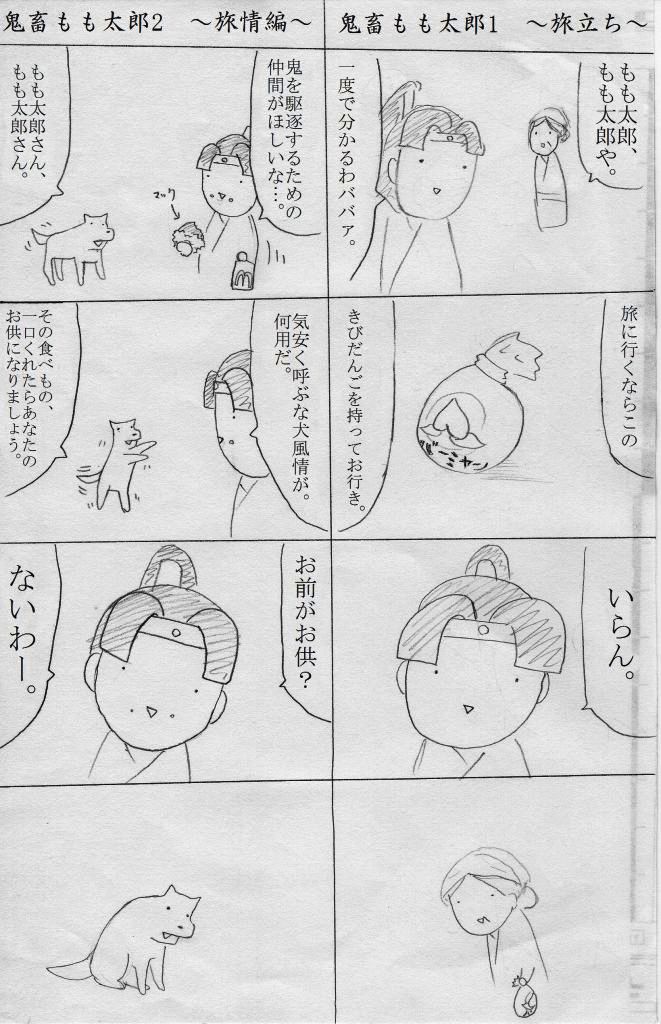 鬼畜もも太郎1　～旅立ち～
もも太郎、
もも太郎や。
一度で分かるわババァ。
旅に行くならこの
きびだんごを持ってお行き。
いらん。
鬼畜もも太郎2　～旅情編～
鬼を駆逐するための
仲間がほしいな…。
マック
もも太郎さん、
もも太郎さん。
気安く呼ぶな犬風情が。
何用だ。
その食べもの、
一口くれたらあなたの
お供になりましょう。
お前がお供？
ないわー。